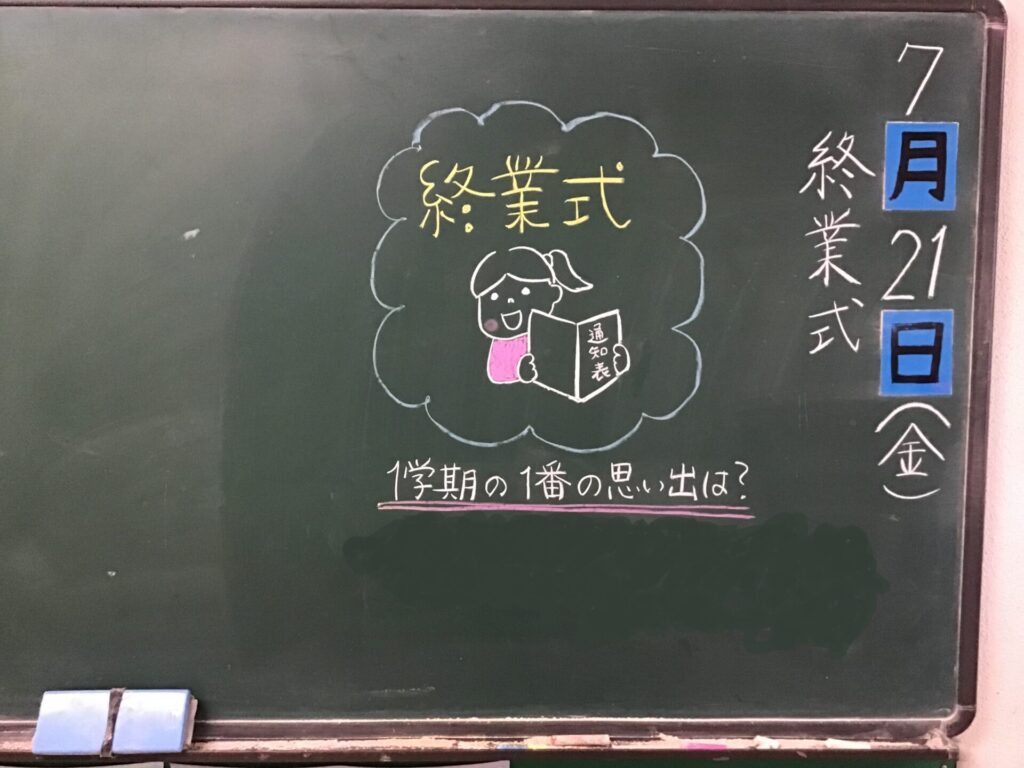 7月21日(金)
終業式
終業式
通知表
1学期の1番の思い出は?